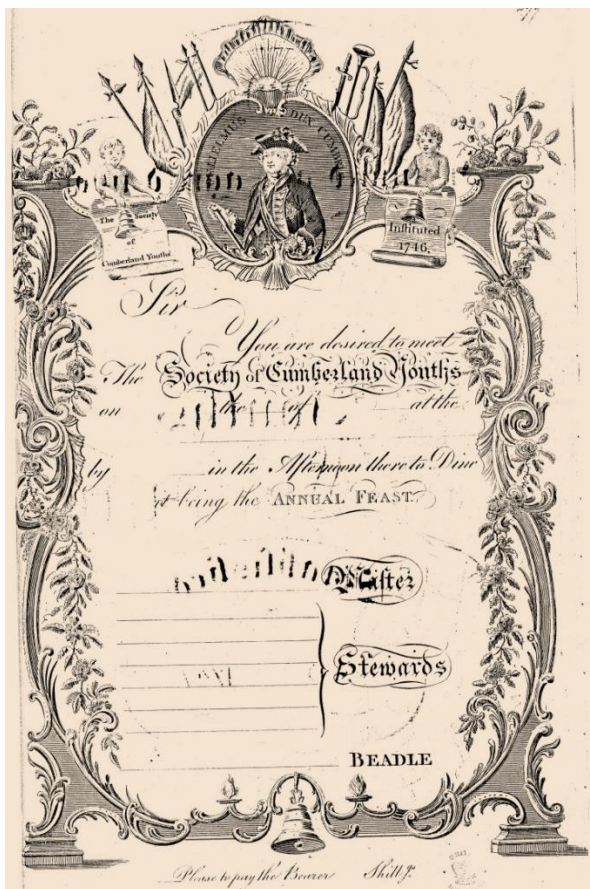 GULIELMUS DUX CUMB
The Society
of
Cumberland Youths
Instituted
1746.
Sir
You are desired to meet
The Society of Cumberland Youths
on the of at the
by in the Afternoon there to Dine
it being the ANNUAL FEAST.
Master
Stewards
BEADLE
Please to pay the Bearer Shillgs.